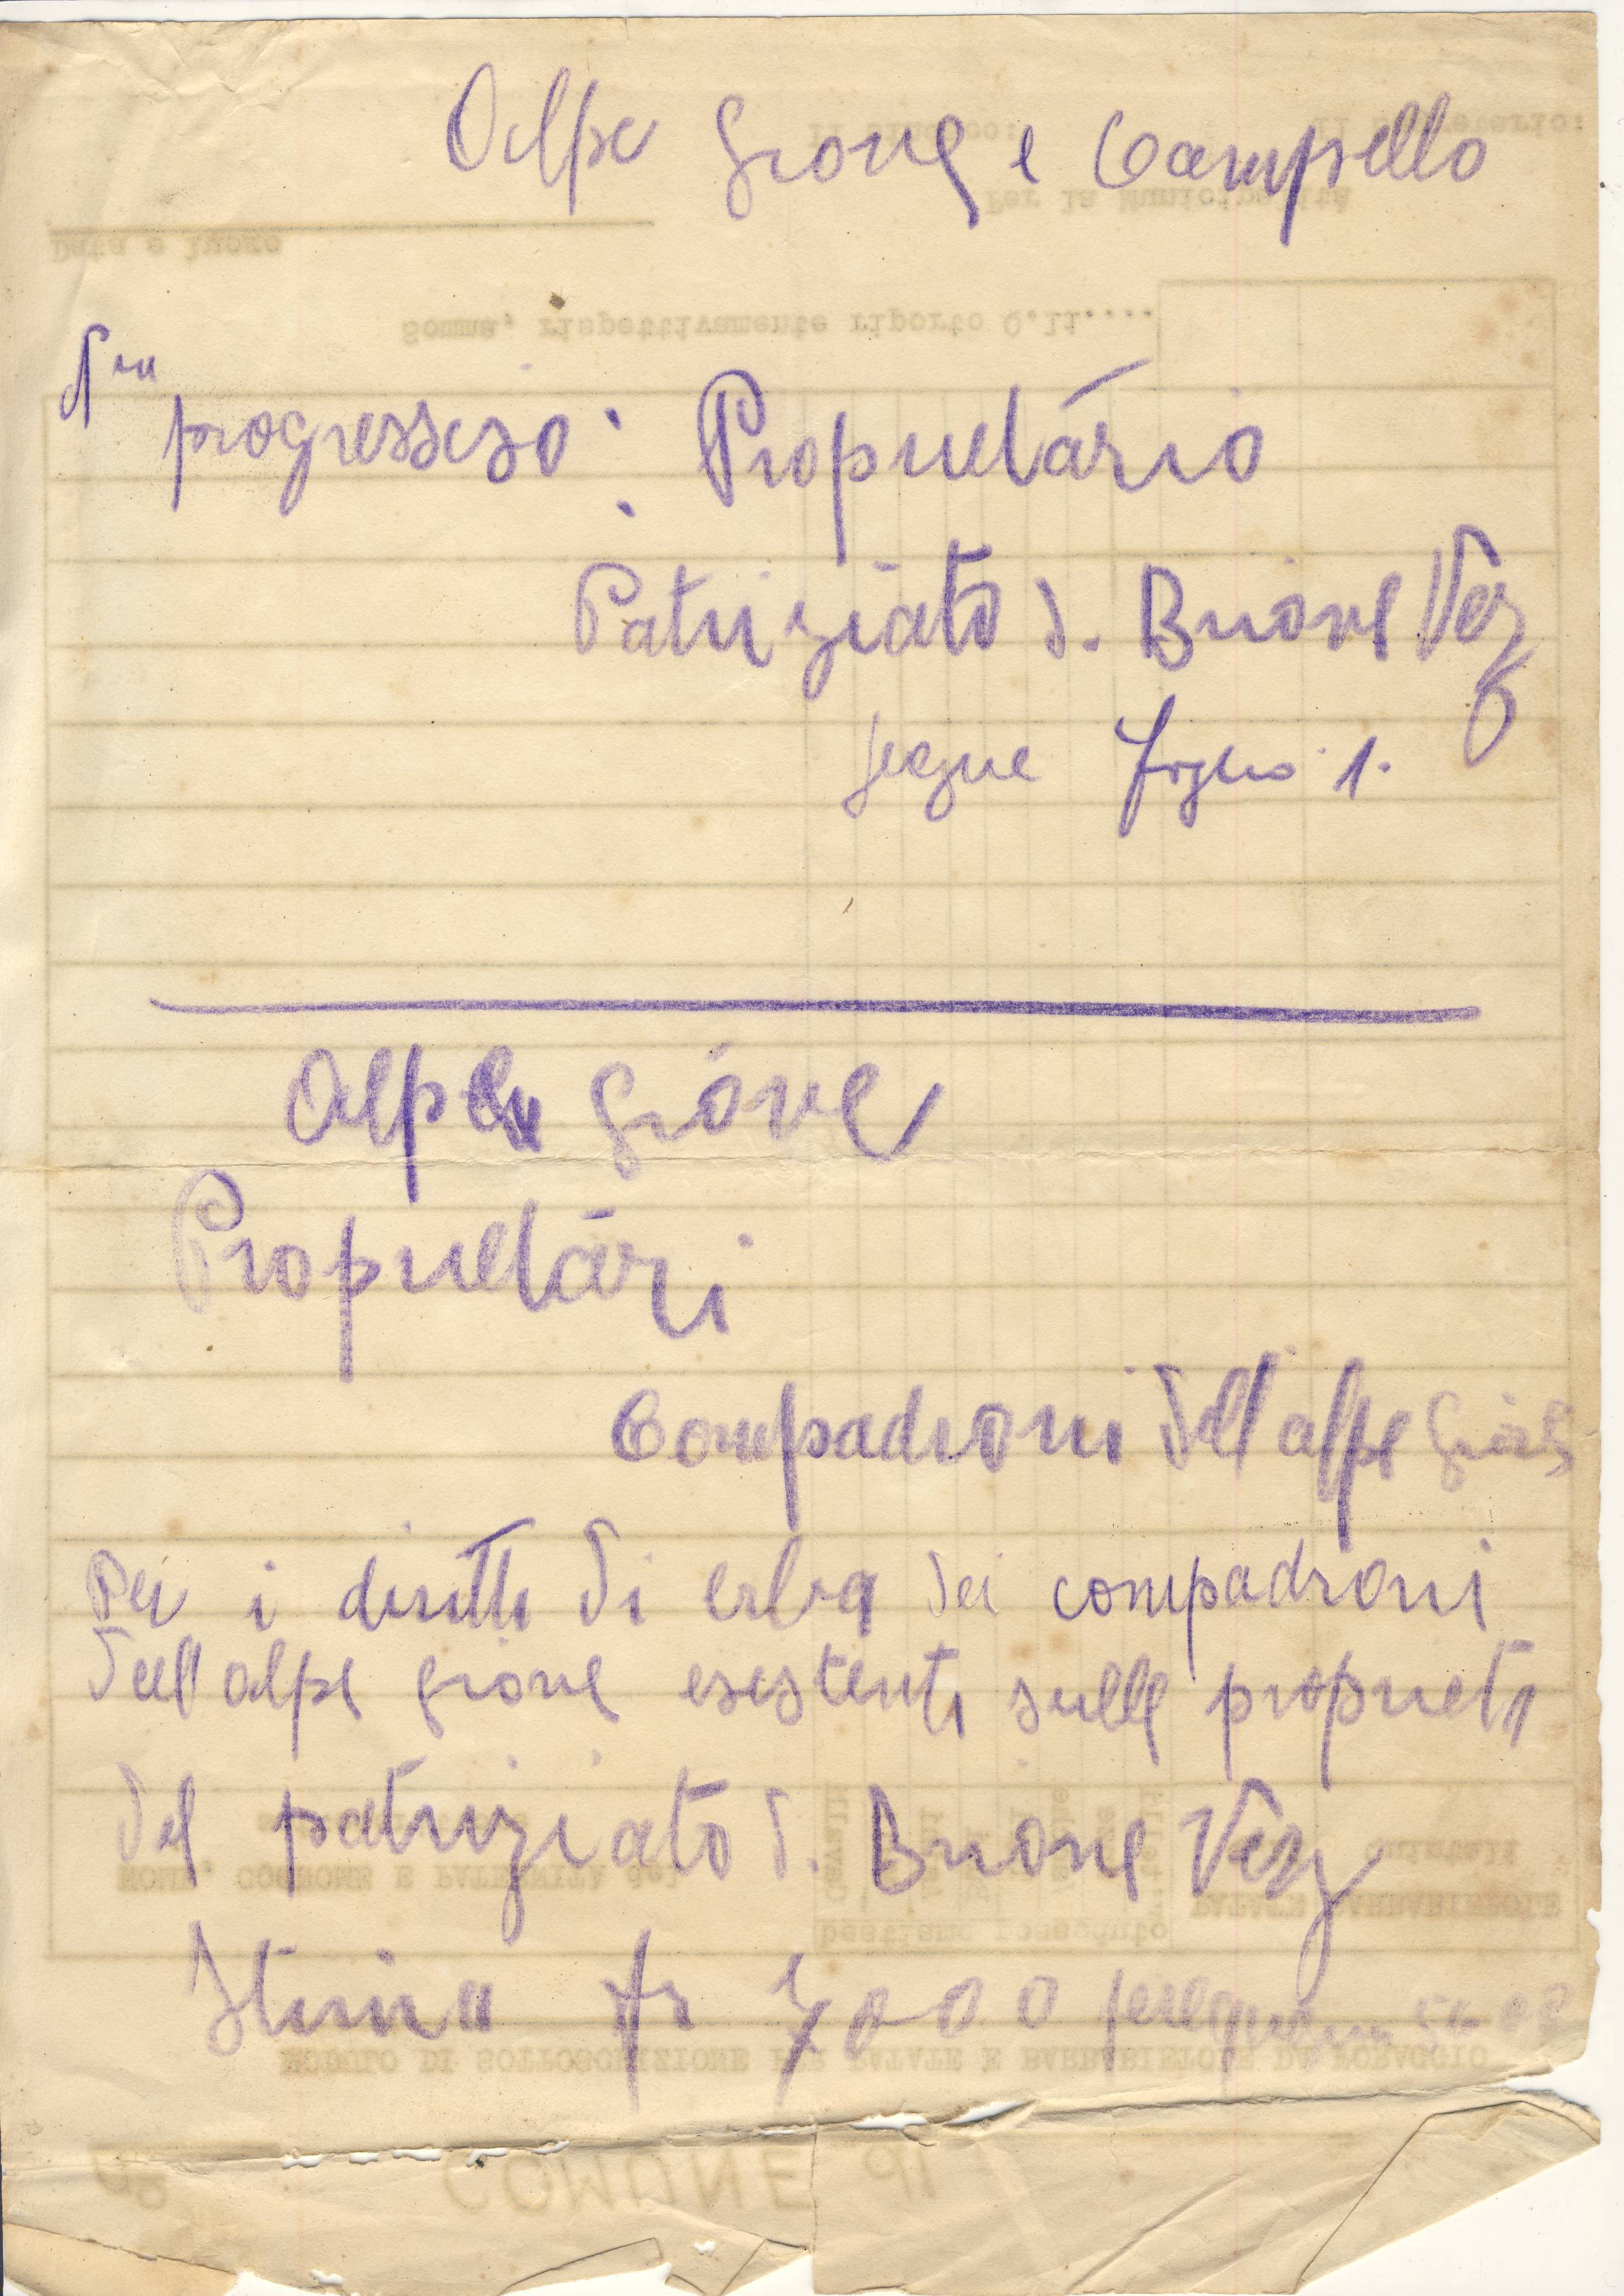 Alpe Giove e Campello
progressivo : Proprietario
Patriziato d. Brione Verz
segue foglio 1.
Alpe Giove
Proprietari
Compadroni dell'alpe Giove
Per i diritti di erba dei compadroni
dell'alpe Giove esistenti sulle proprietà
del patriziato d. Brione Verz
Stima fr 7000